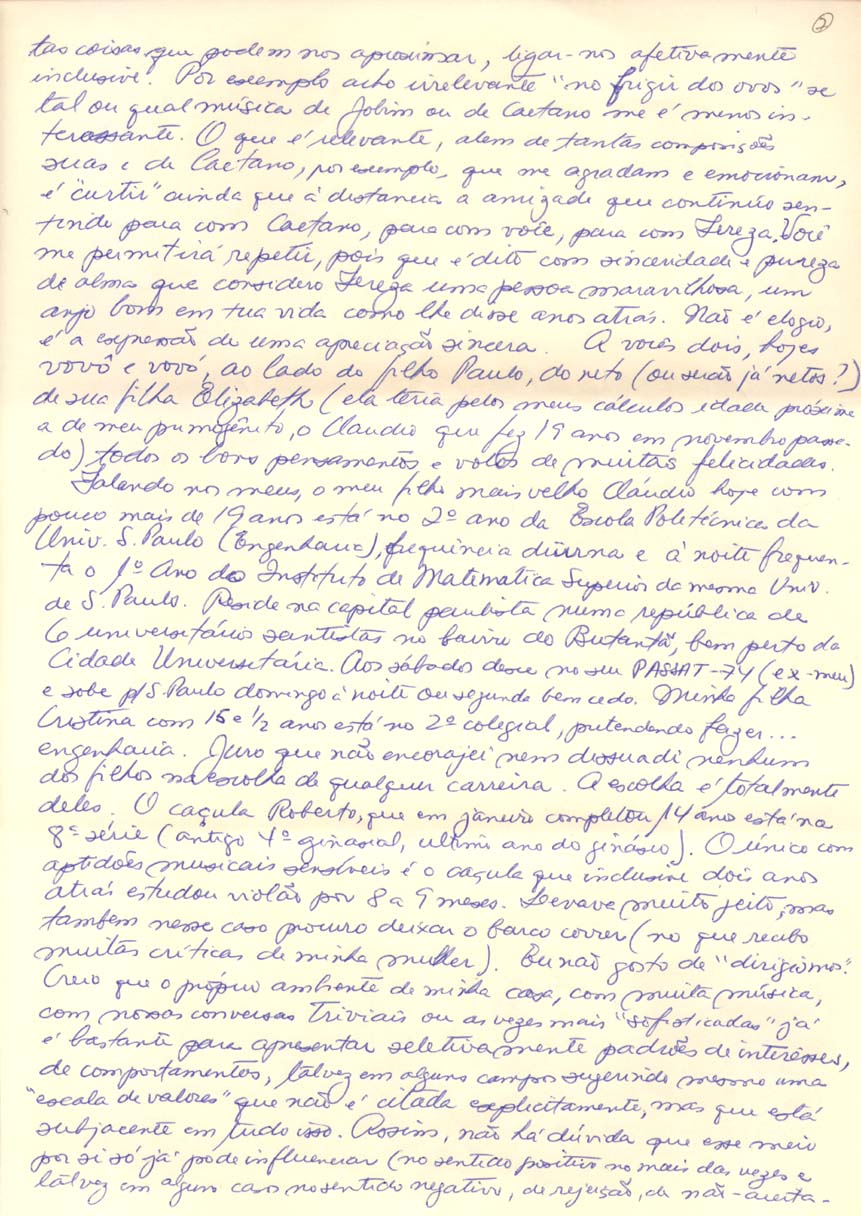 2
tas coisas que podem nos aproximar, ligar-nos afetivamente
inclusive. Por exemplo acho irrelevante "no frigir dos ovos" se
tal ou qual música de Jobim ou de Caetano me é menos in-
teressante. O que é relevante, alem de tantas composições
suas e de Caetano, por exemplo, que me agradam e emocionam,
é "curtir" ainda que à distancia a amizade que continúo sen-
tindo para com Caetano, para com você, para com Tereza. Você
me permitirá repetir, pois que é dito com sinceridade e pureza
de alma que considero Tereza uma pessoa maravilhosa, um
anjo bom em tua vida como lhe disse anos atrás. Não é elogio,
é a expressão de uma apreciação sincera. A vocês dois, hojes
vovô e vovó, ao lado do filho Paulo, do neto (ou serão já netos?)
de sua filha Elizabeth (ela teria pelos meus cálculos idade próxima
a de meu primogênito, o Claudio que fez 19 anos em novembro passa-
do) todos os bons pensamentos e votos de muitas felicidades.
Falando nos meus, o meu filho mais velho Cláudio hoje com
pouco mais de 19 anos está no 2º ano da Escola Politécnica da
Univ. S. Paulo (Engenharia), frequência diurna e à noite frequen-
ta o 1º Ano do Instituto de Matematica Superior da mesma Univ.
de S. Paulo. Reside na capital paulista numa república de
6 universitários santistas no bairro do Butantã, bem perto da
Cidade Universitária. Aos sábados desce no seu PASSAT-74 (ex-meu)
e sobe p/ S. Paulo domingo à noite ou segunda bem cedo. Minha filha
Cristina com 15 e 1/2 anos está no 2º colegial, pretendendo fazer...
engenharia. Juro que não encorajei nem dissuadi nenhum
dos filhos na escolha de qualquer carreira. A escolha é totalmente
deles. O caçula Roberto, que em janeiro completou 14 ano está na
8ª série (antigo 4º ginasial, ultimo ano do ginásio). O único com
aptidões musicais sensíveis é o caçula que inclusive dois anos
atrás estudou violão por 8 a 9 meses. Levava muito jeito, mas
tambem nesse caso procuro deixar o barco correr (no que recebo
muitas críticas de minha mulher). Eu não gosto de "dirigismos".
Creio que o próprio ambiente de minha casa, com muita música,
com nossas conversas triviais ou as vezes mais "sofisticadas" já
é bastante para apresentar seletivamente padrões de interêsses,
de comportamentos, talvez em alguns campos sugerindo mesmo uma
"escala de valores" que não é citada explicitamente, mas que está
subjacente em tudo isso. Assim, não há dúvida que esse meio
por si só já pode influenciar (no sentido positivo no mais das vezes e
talvez em alguns casos no sentido negativo, de rejeição, de não-aceita-